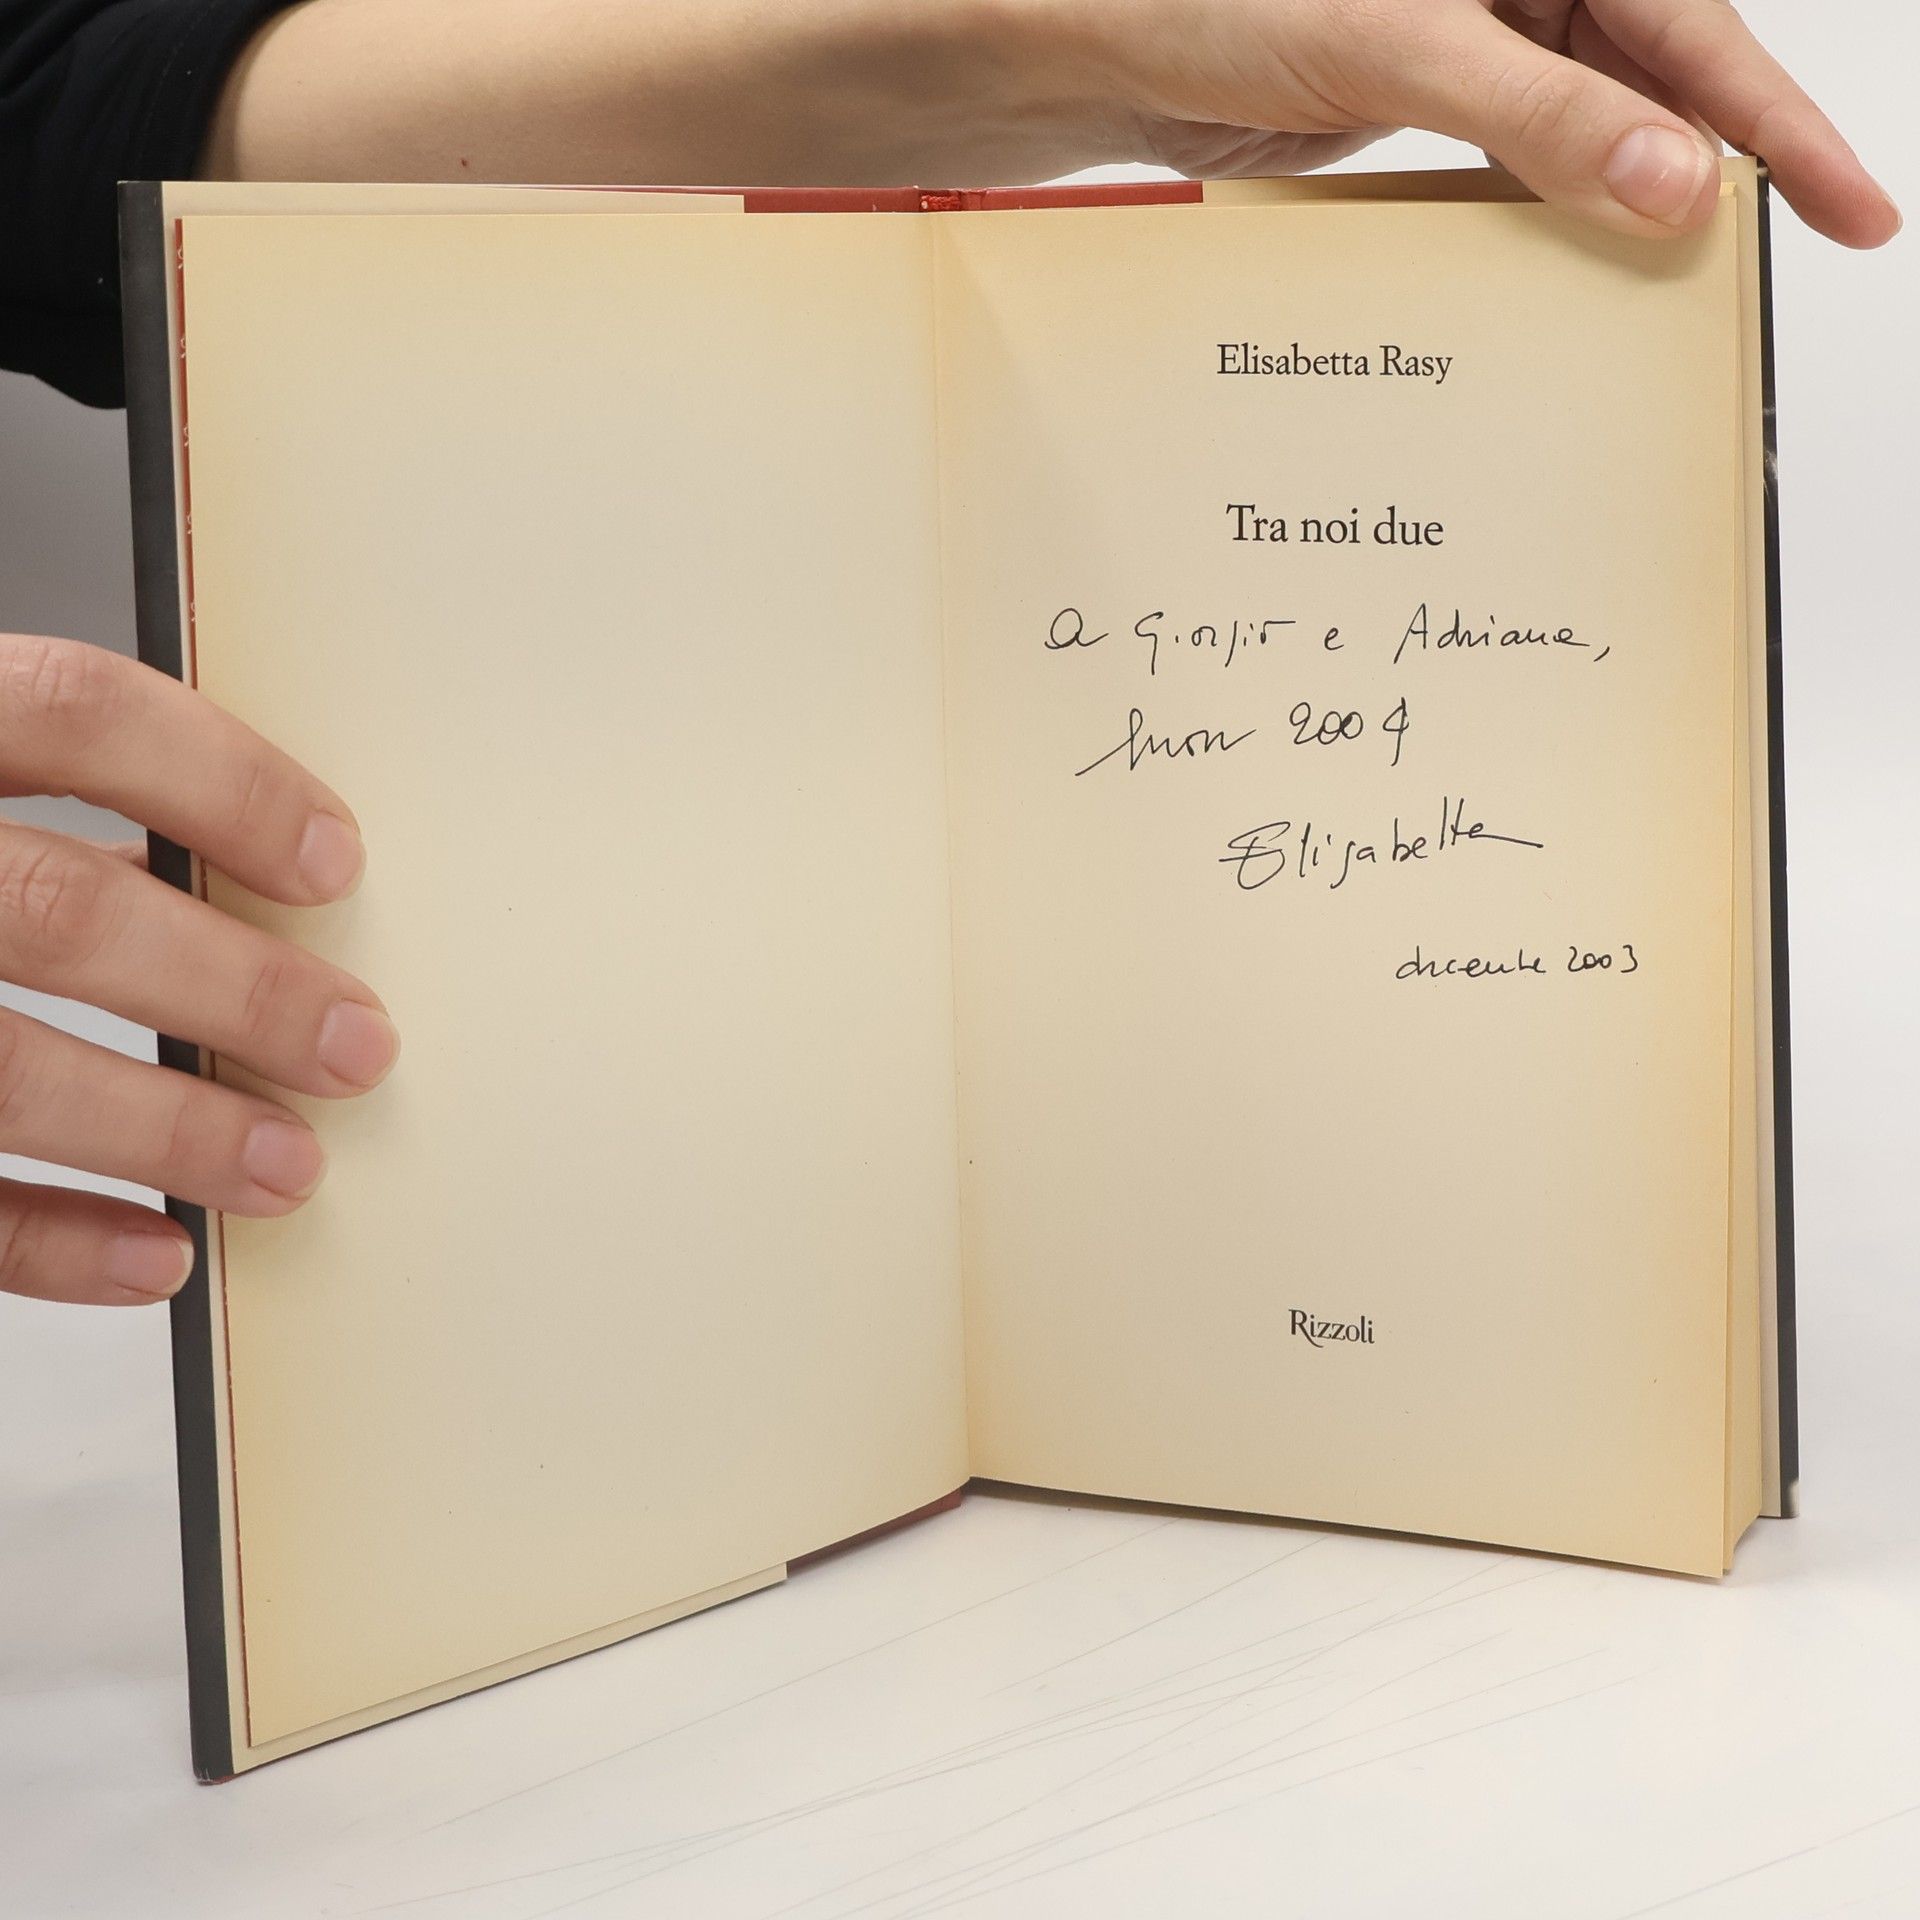 Elisabetta Rasy
Tra noi due
A Giorgio e Adriana,
buon 2004
Elisabetta
dicembre 2003
Rizzoli